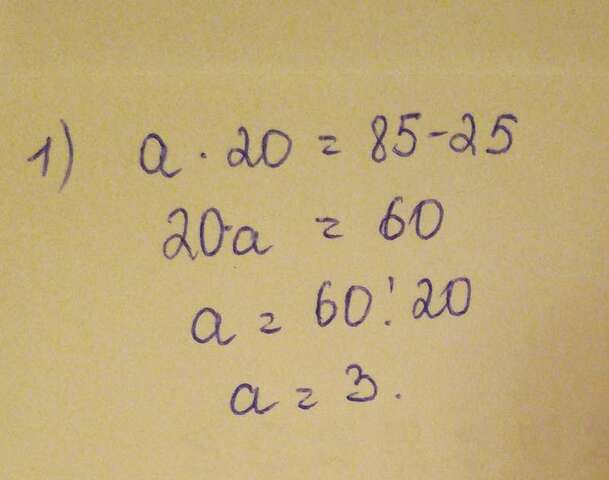 1) a · 20 = 85-25
20·a = 60
a = 60:20
a = 3.